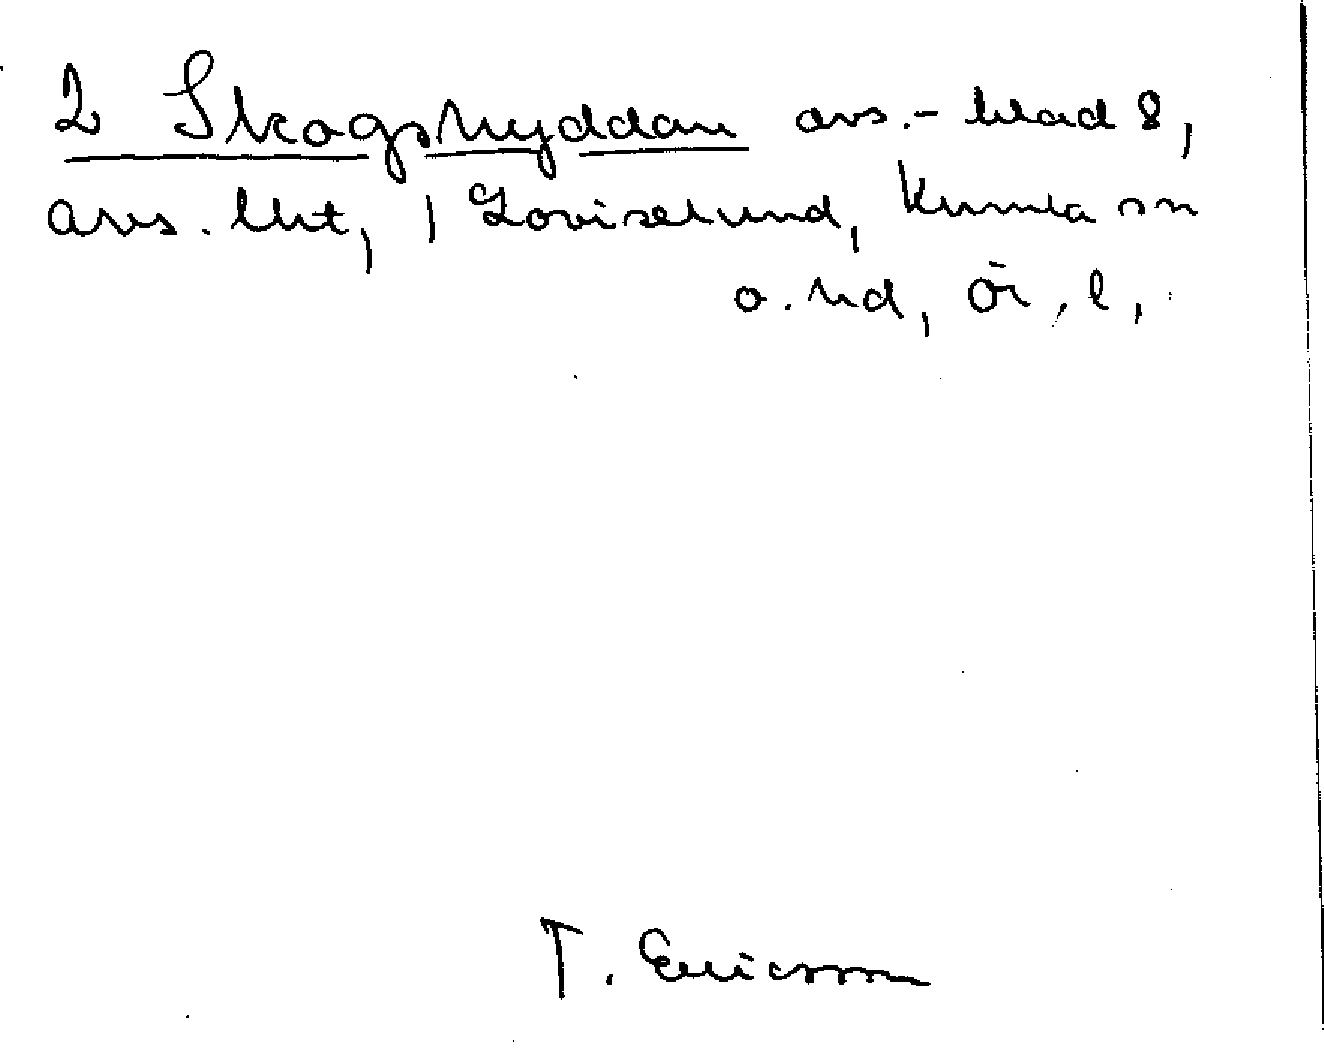 2 Skogshyddan avs.- blad 8,
avs. lht, 1 Loviselund, Kumla sn
o. hd, Ör. l,
T. Ericsson